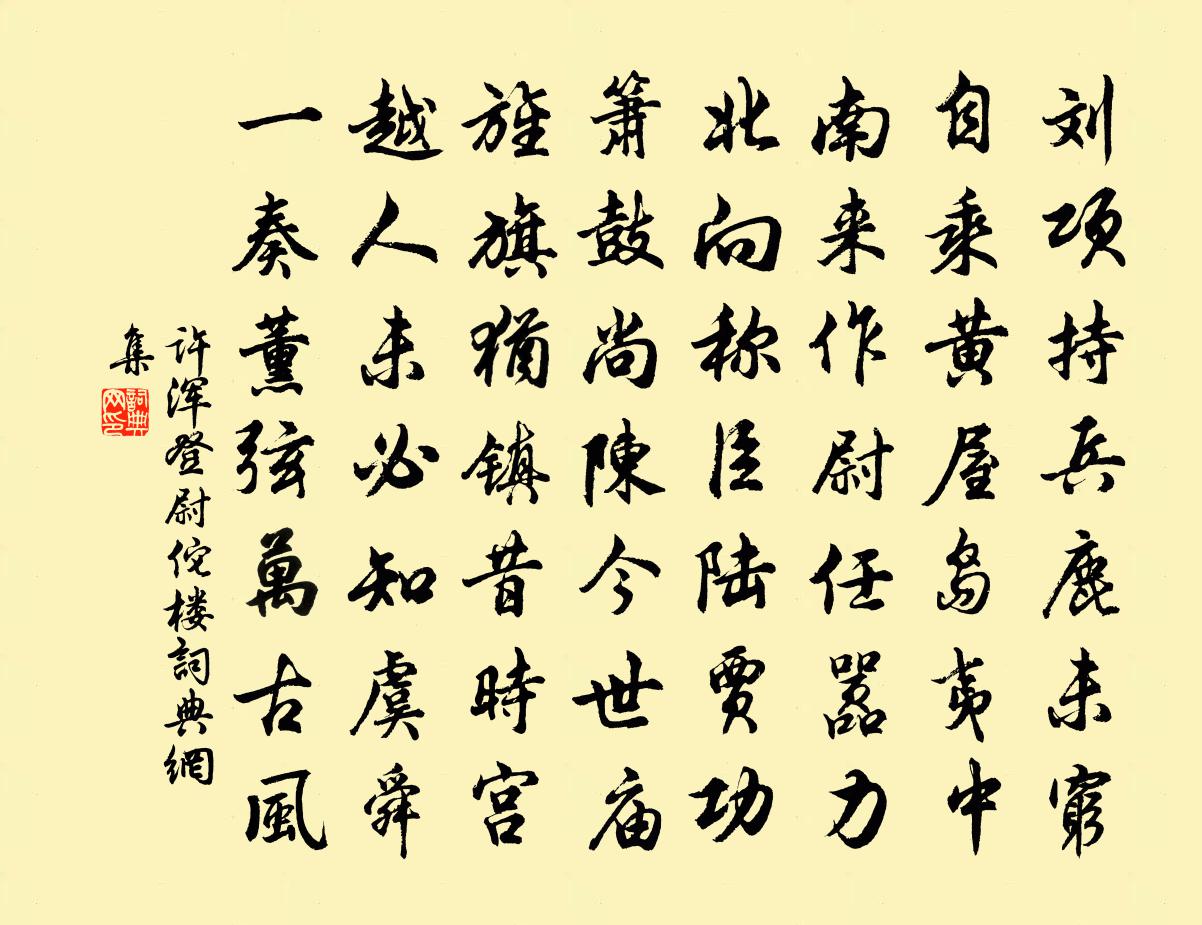 刘项持兵鹿未窮
自乘黄屋島夷中
南来作尉任嚣力
北向称臣陆贾功
箫鼓尚陳今世庙
旌旗猶镇昔時宫
越人未必知虞舜
一奏薰弦萬古風
许浑登尉佗楼詞典網
集
詞典网印